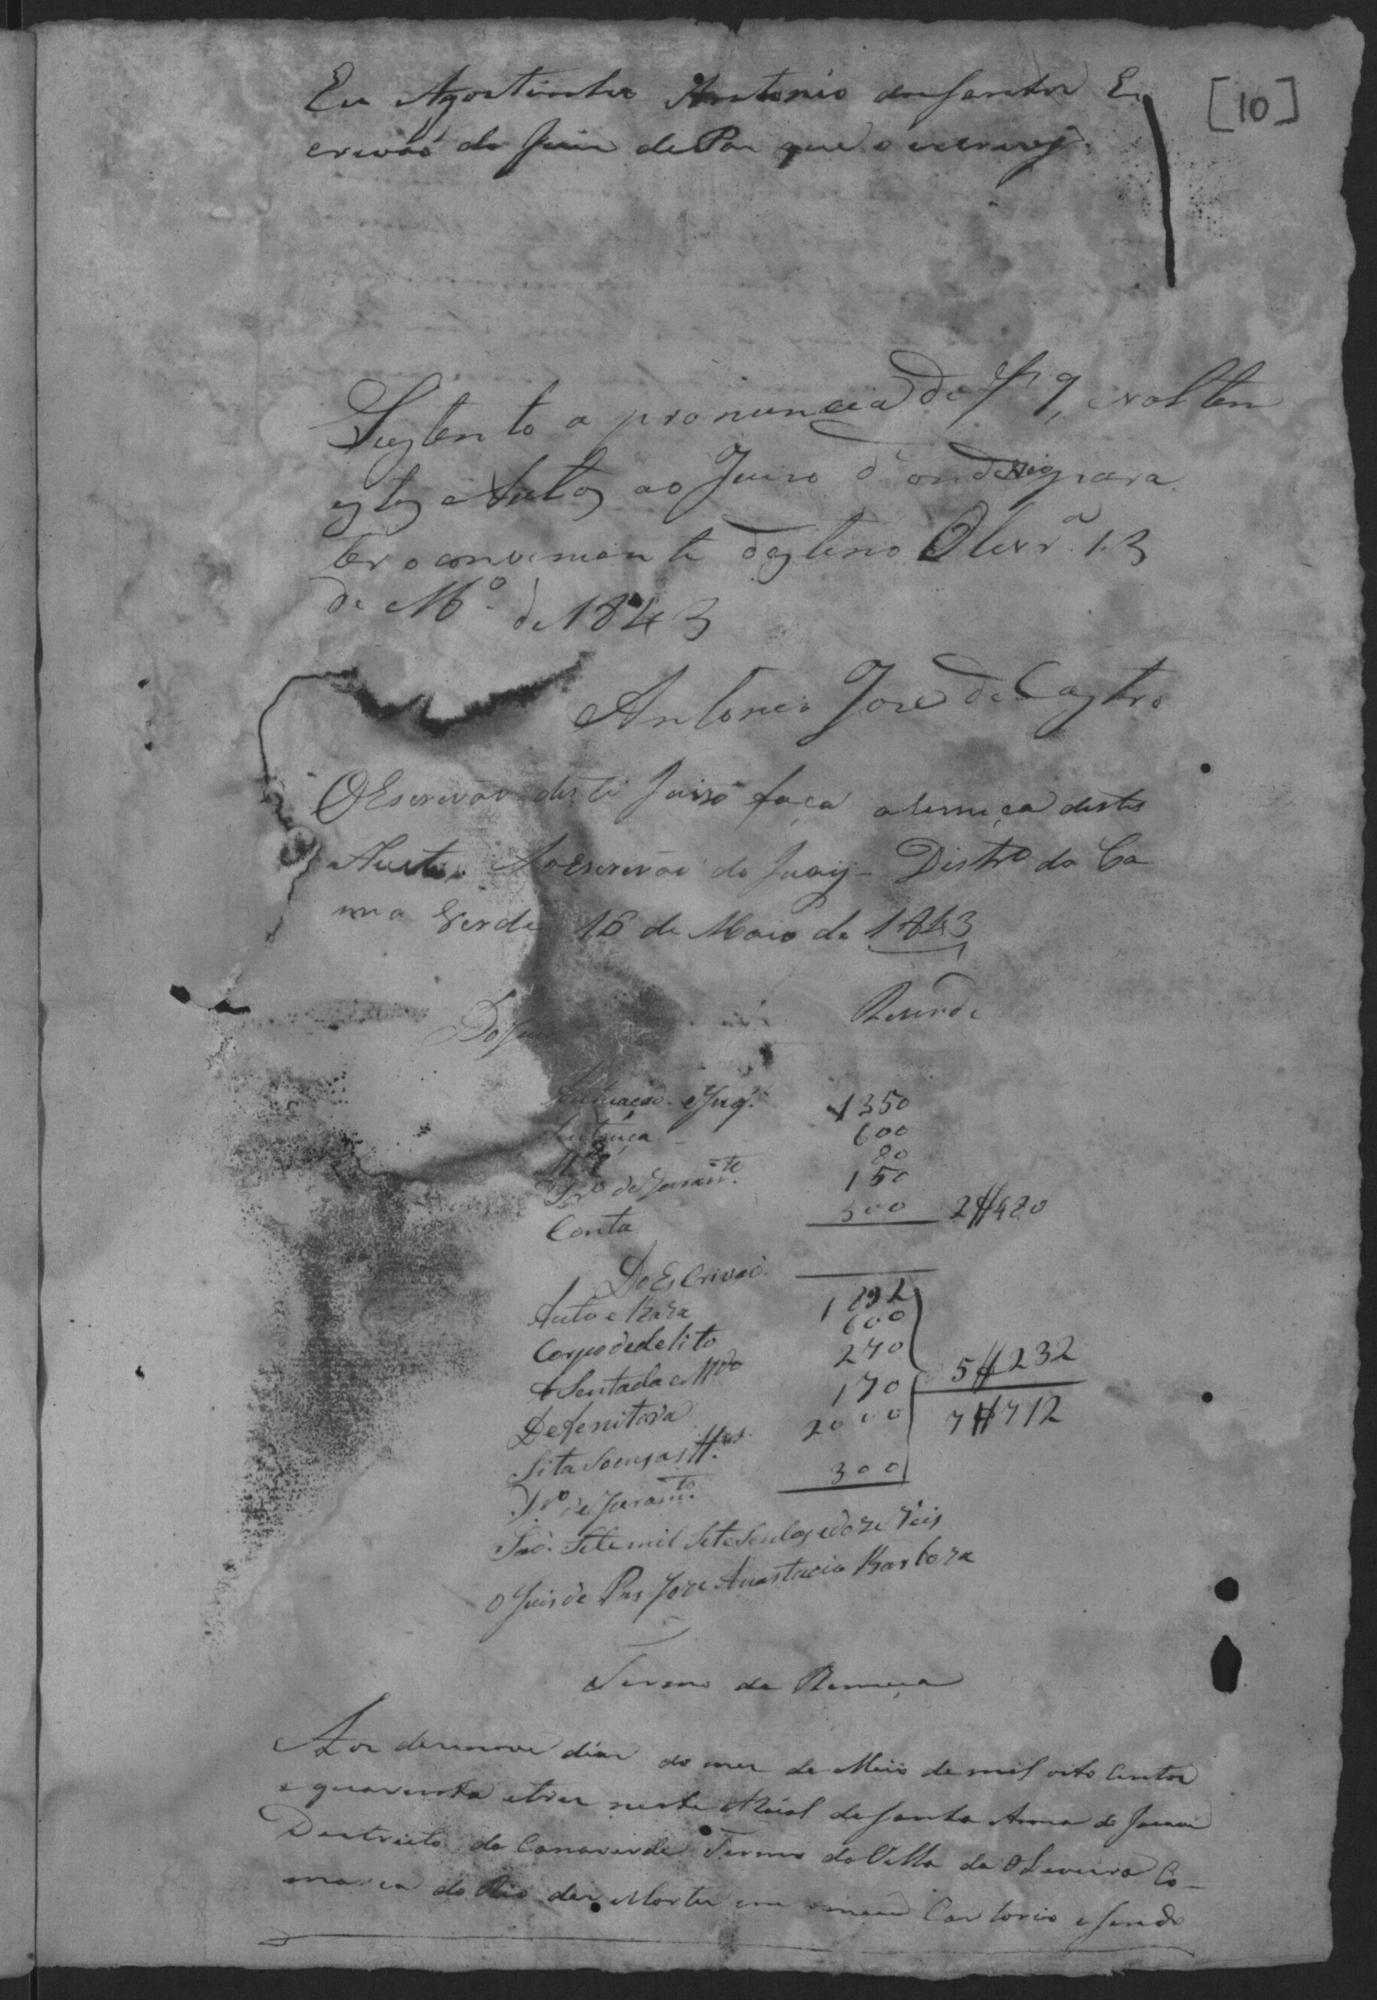 [10]
Eu Agostinho Antonio dos Santos Es
crivaõ do Juiz de Paz que o escrevy.
Sustento a pronuncia de f 9, e voltem
estes Autos ao Juizo d'onde para
ter o conveniente destino Olivr.ª 13
de M.º de 1843
Antonio Joze de Castro
O Escrivaõ deste Juizo faça a remeça destes
Autos Ao Escrivaõ do Jury Distrº da Ca
na Verde 16 de Maio de 1843
Rezende
Do Juiz
Autuacaõ e Inq.
1350
Sentença
600
80
de Juram.to
150
Conta
300 2#480
Do Escrivaõ
Auto e Raza
1892
Corpo de delito
600
Asentada e M.do
240
5#232
Defenitoria
170
7#712
Sita soens as tt.as
2000
de Juram.to
300
Saõ Sete mil Sete Sentos e doze reis
O Juis de Pas Joze Anastacio Barboza
Termo de Remeça
Aos desenove dias do mez de Maio de mil oito centos
e quarenta e tres neste Arraial de Santa Anna do Jacaré
Destricto da Canaverde Termo da Villa da Oliveira Co-
marca do Rio das Mortes em o meu Cartorio e sendo